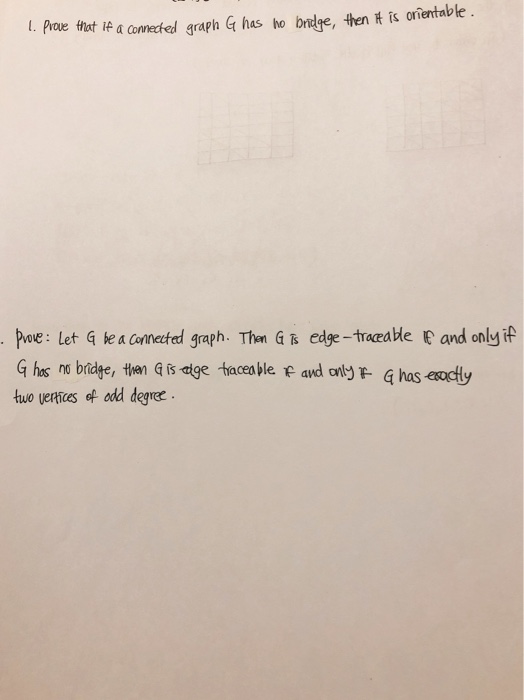 1. Prove that if a connected graph G has no bridge, then it is orientable.
. Prove: Let G be a connected graph. Then G is edge-traceable if and only if
G has no bridge, then G is edge traceable if and only if G has exactly
two vertices of odd degree.